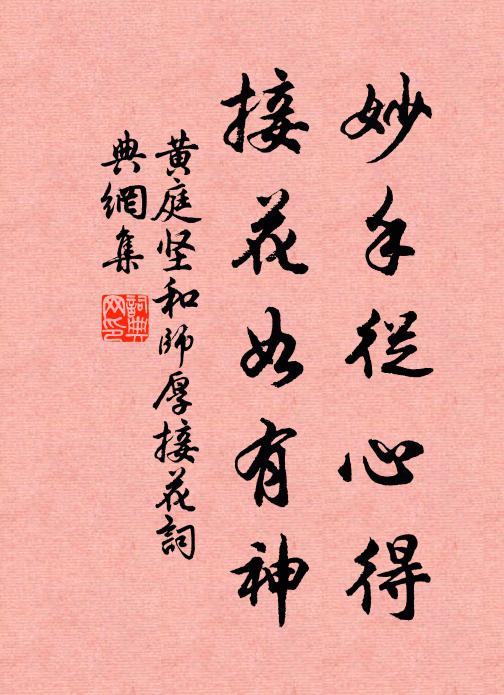 妙手從心得
接花如有神
黄庭坚和師厚接花詞
典網集
詞典
网印